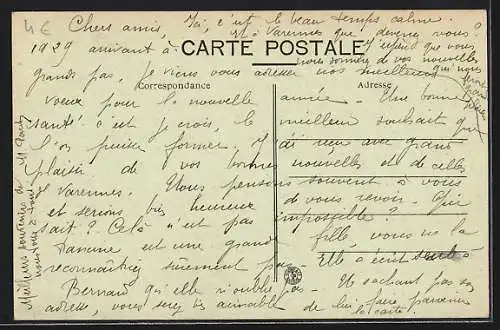 4 €
Chers amis, Ici, c'est le beau temps calme.
Et à Varennes que devenez vous?
1929 arrivant à
CARTE POSTALE
grands pas, je viens vous adresser nos meilleurs
Correspondance
Adresse
voeux pour la nouvelle année. Une bonne
santé c'est je crois, le meilleur souhait que
l'on puisse former. J'ai eu avec grand
plaisir de vos bonnes nouvelles et de celles
de Varennes. Nous pensons souvent à vous
et serions bien heureux de vous revoir. Qui
sait? Celà n'est pas impossible?
Jeannine est une grande fille, vous ne la
reconnaîtriez sûrement pas. Elle a écrit seule à
Bernard qu'elle n'oublie pas. Ne sachant pas son
adresse, vous serez bien aimable de lui faire parvenir
la carte.
Meilleurs souvenirs de M.
nous tous à tous